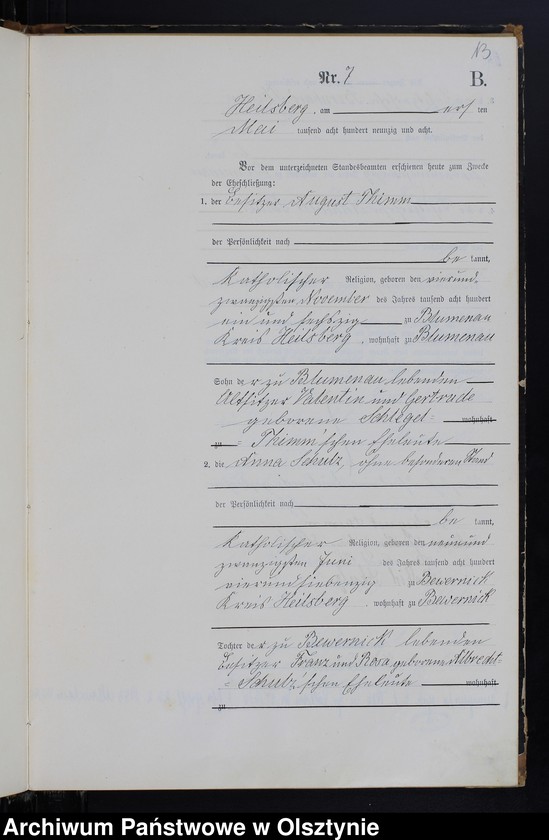 13
Nr. 7
B.
Heilsberg, am ersten
Mai tausend acht hundert neunzig und acht.
Vor dem unterzeichneten Standesbeamten erschienen heute zum Zwecke
der Eheschließung:
1. der Besitzer August Thimm
der Persönlichkeit nach
be kannt,
katholischer Religion, geboren den vierund
zwanzigsten November des Jahres tausend acht hundert
ein und sechszig zu Blumenau
Kreis Heilsberg, wohnhaft zu Blumenau
Sohn der zu Blumenau lebenden
Altsitzer Valentin und Gertrude
geborene Schlegel- wohnhaft
zu Thimm'schen Eheleute
2. die Anna Schulz, ohne besonderen Stand
der Persönlichkeit nach
be kannt,
katholischer Religion, geboren den neunund
zwanzigsten Juni des Jahres tausend acht hundert
vierundsiebenzig zu Bewernick
Kreis Heilsberg, wohnhaft zu Bewernick
Tochter der zu Bewernick lebenden
Besitzer Franz und Rosa geborene Albrecht-
-Schulz'schen Eheleute wohnhaft
zu
Archiwum Państwowe w Olsztynie